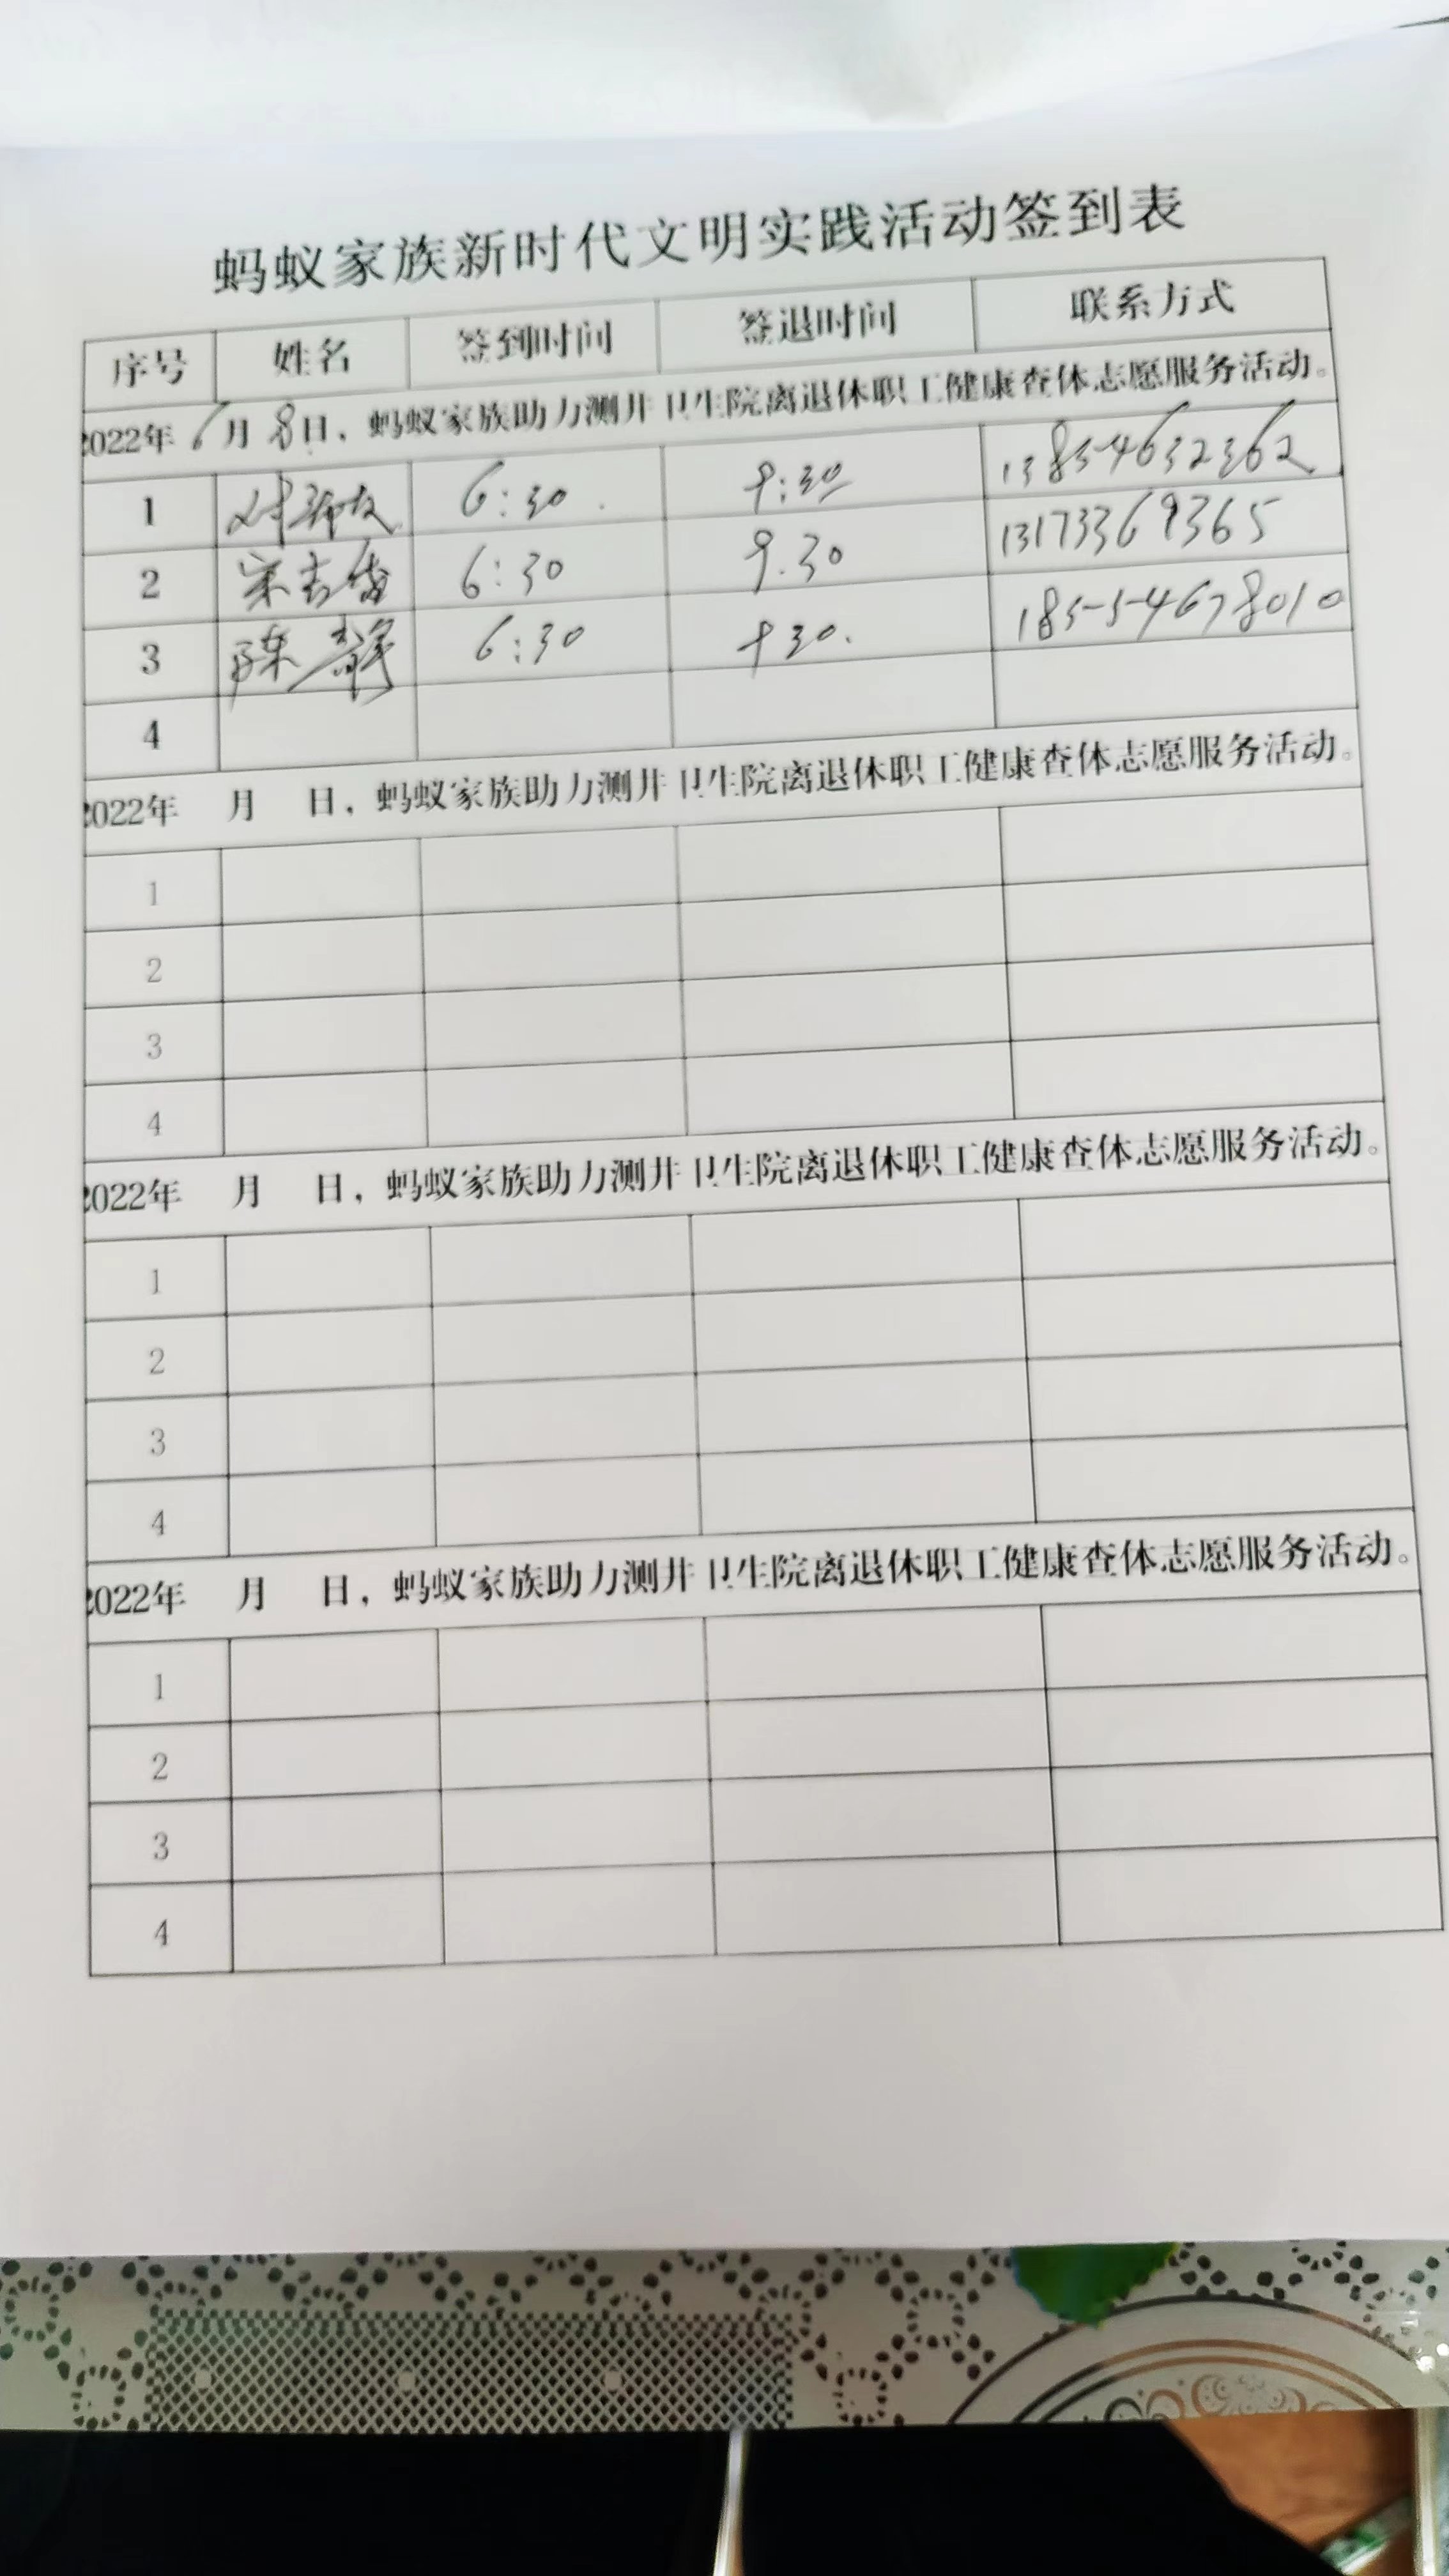 蚂蚁家族新时代文明实践活动签到表
序号 姓名 签到时间 签退时间 联系方式
2022年6月8日，蚂蚁家族助力测井卫生院离退休职工健康查体志愿服务活动。
1 6:30 9:30 13854632362
2 6:30 9.30 13173369365
3 陈静 6:30 930. 18554678010
4
2022年 月 日，蚂蚁家族助力测井卫生院离退休职工健康查体志愿服务活动。
1
2
3
4
2022年 月 日，蚂蚁家族助力测井卫生院离退休职工健康查体志愿服务活动。
1
2
3
4
2022年 月 日，蚂蚁家族助力测井卫生院离退休职工健康查体志愿服务活动。
1
2
3
4